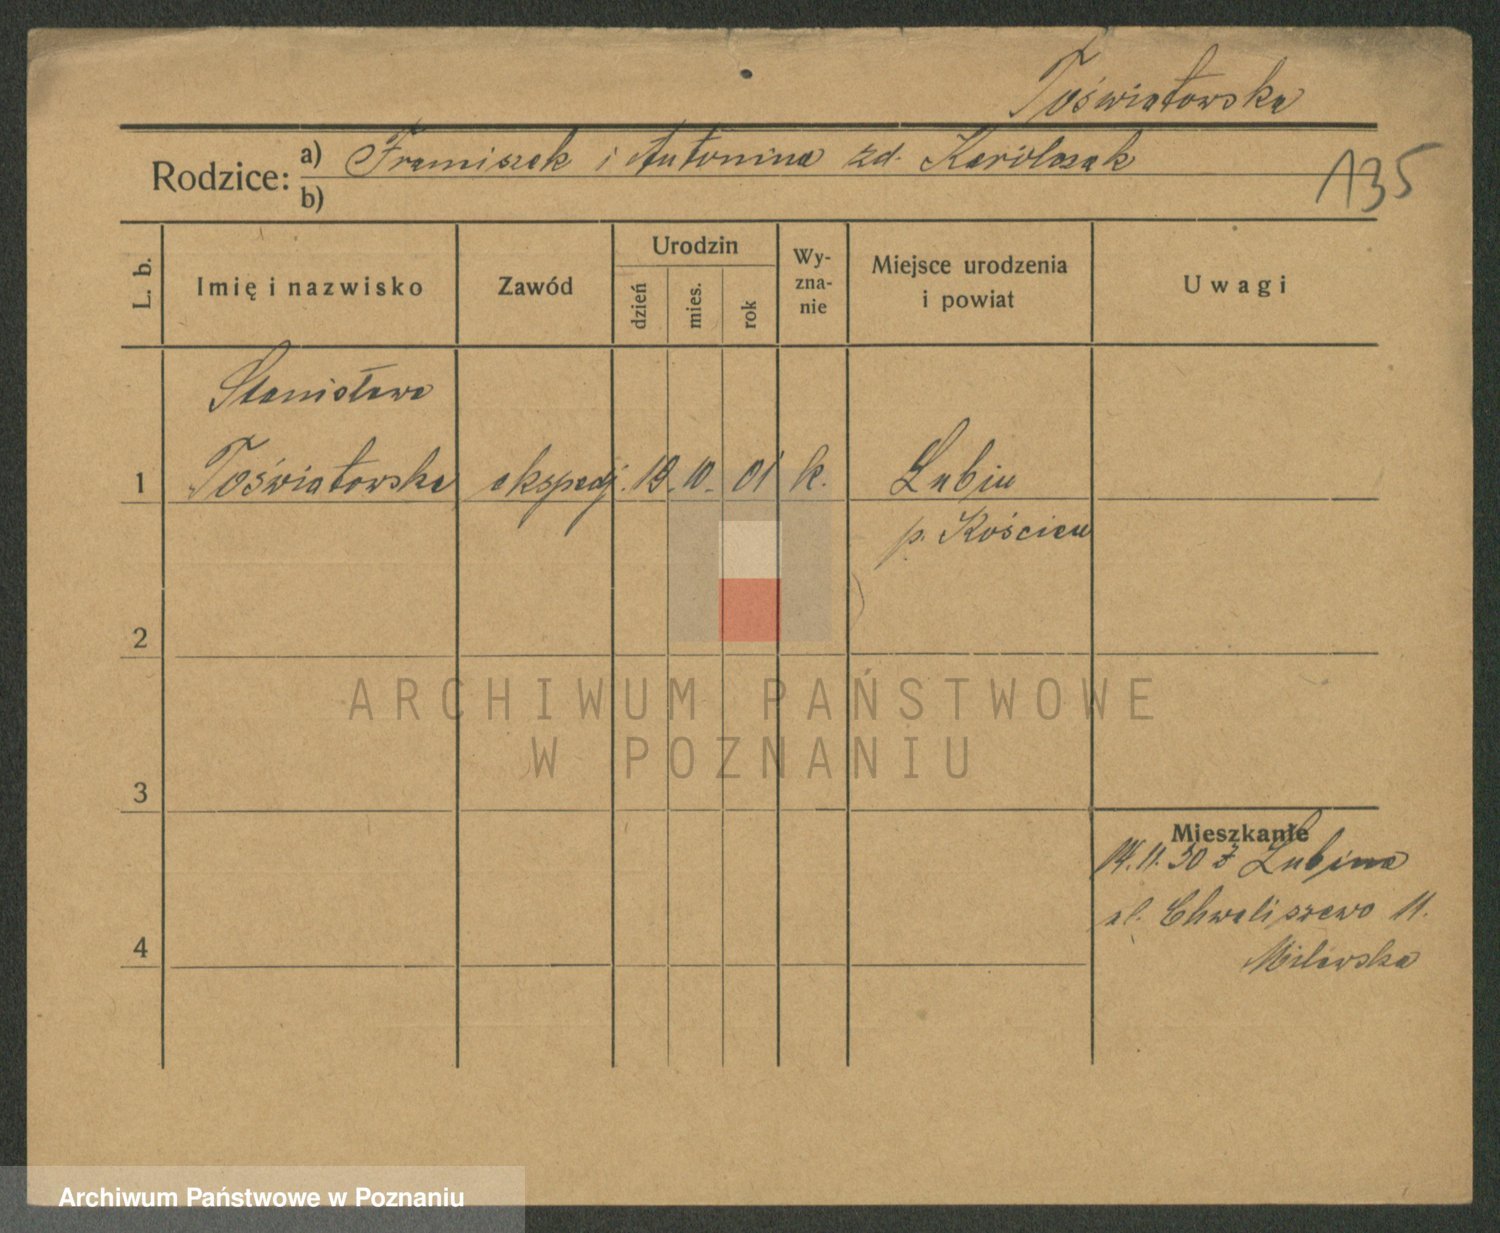 Toświatowska
Rodzice: a) Franciszek i Antonina zd. Karólczak
b)
135
L. b.
Imię i nazwisko
Zawód
Urodzin
dzień
mies.
rok
Wy-
zna-
nie
Miejsce urodzenia
i powiat
Uwagi
Stanisława
1 Toświatowska ekspedj. 19. 10. 01 k. Lubiń
p. Kościan
2
3
Mieszkanie
14.11.30 z Lubinia
ul. Chwaliszewo 11.
4
Milewska
ARCHIWUM PAŃSTWOWE
W POZNANIU
Archiwum Państwowe w Poznaniu